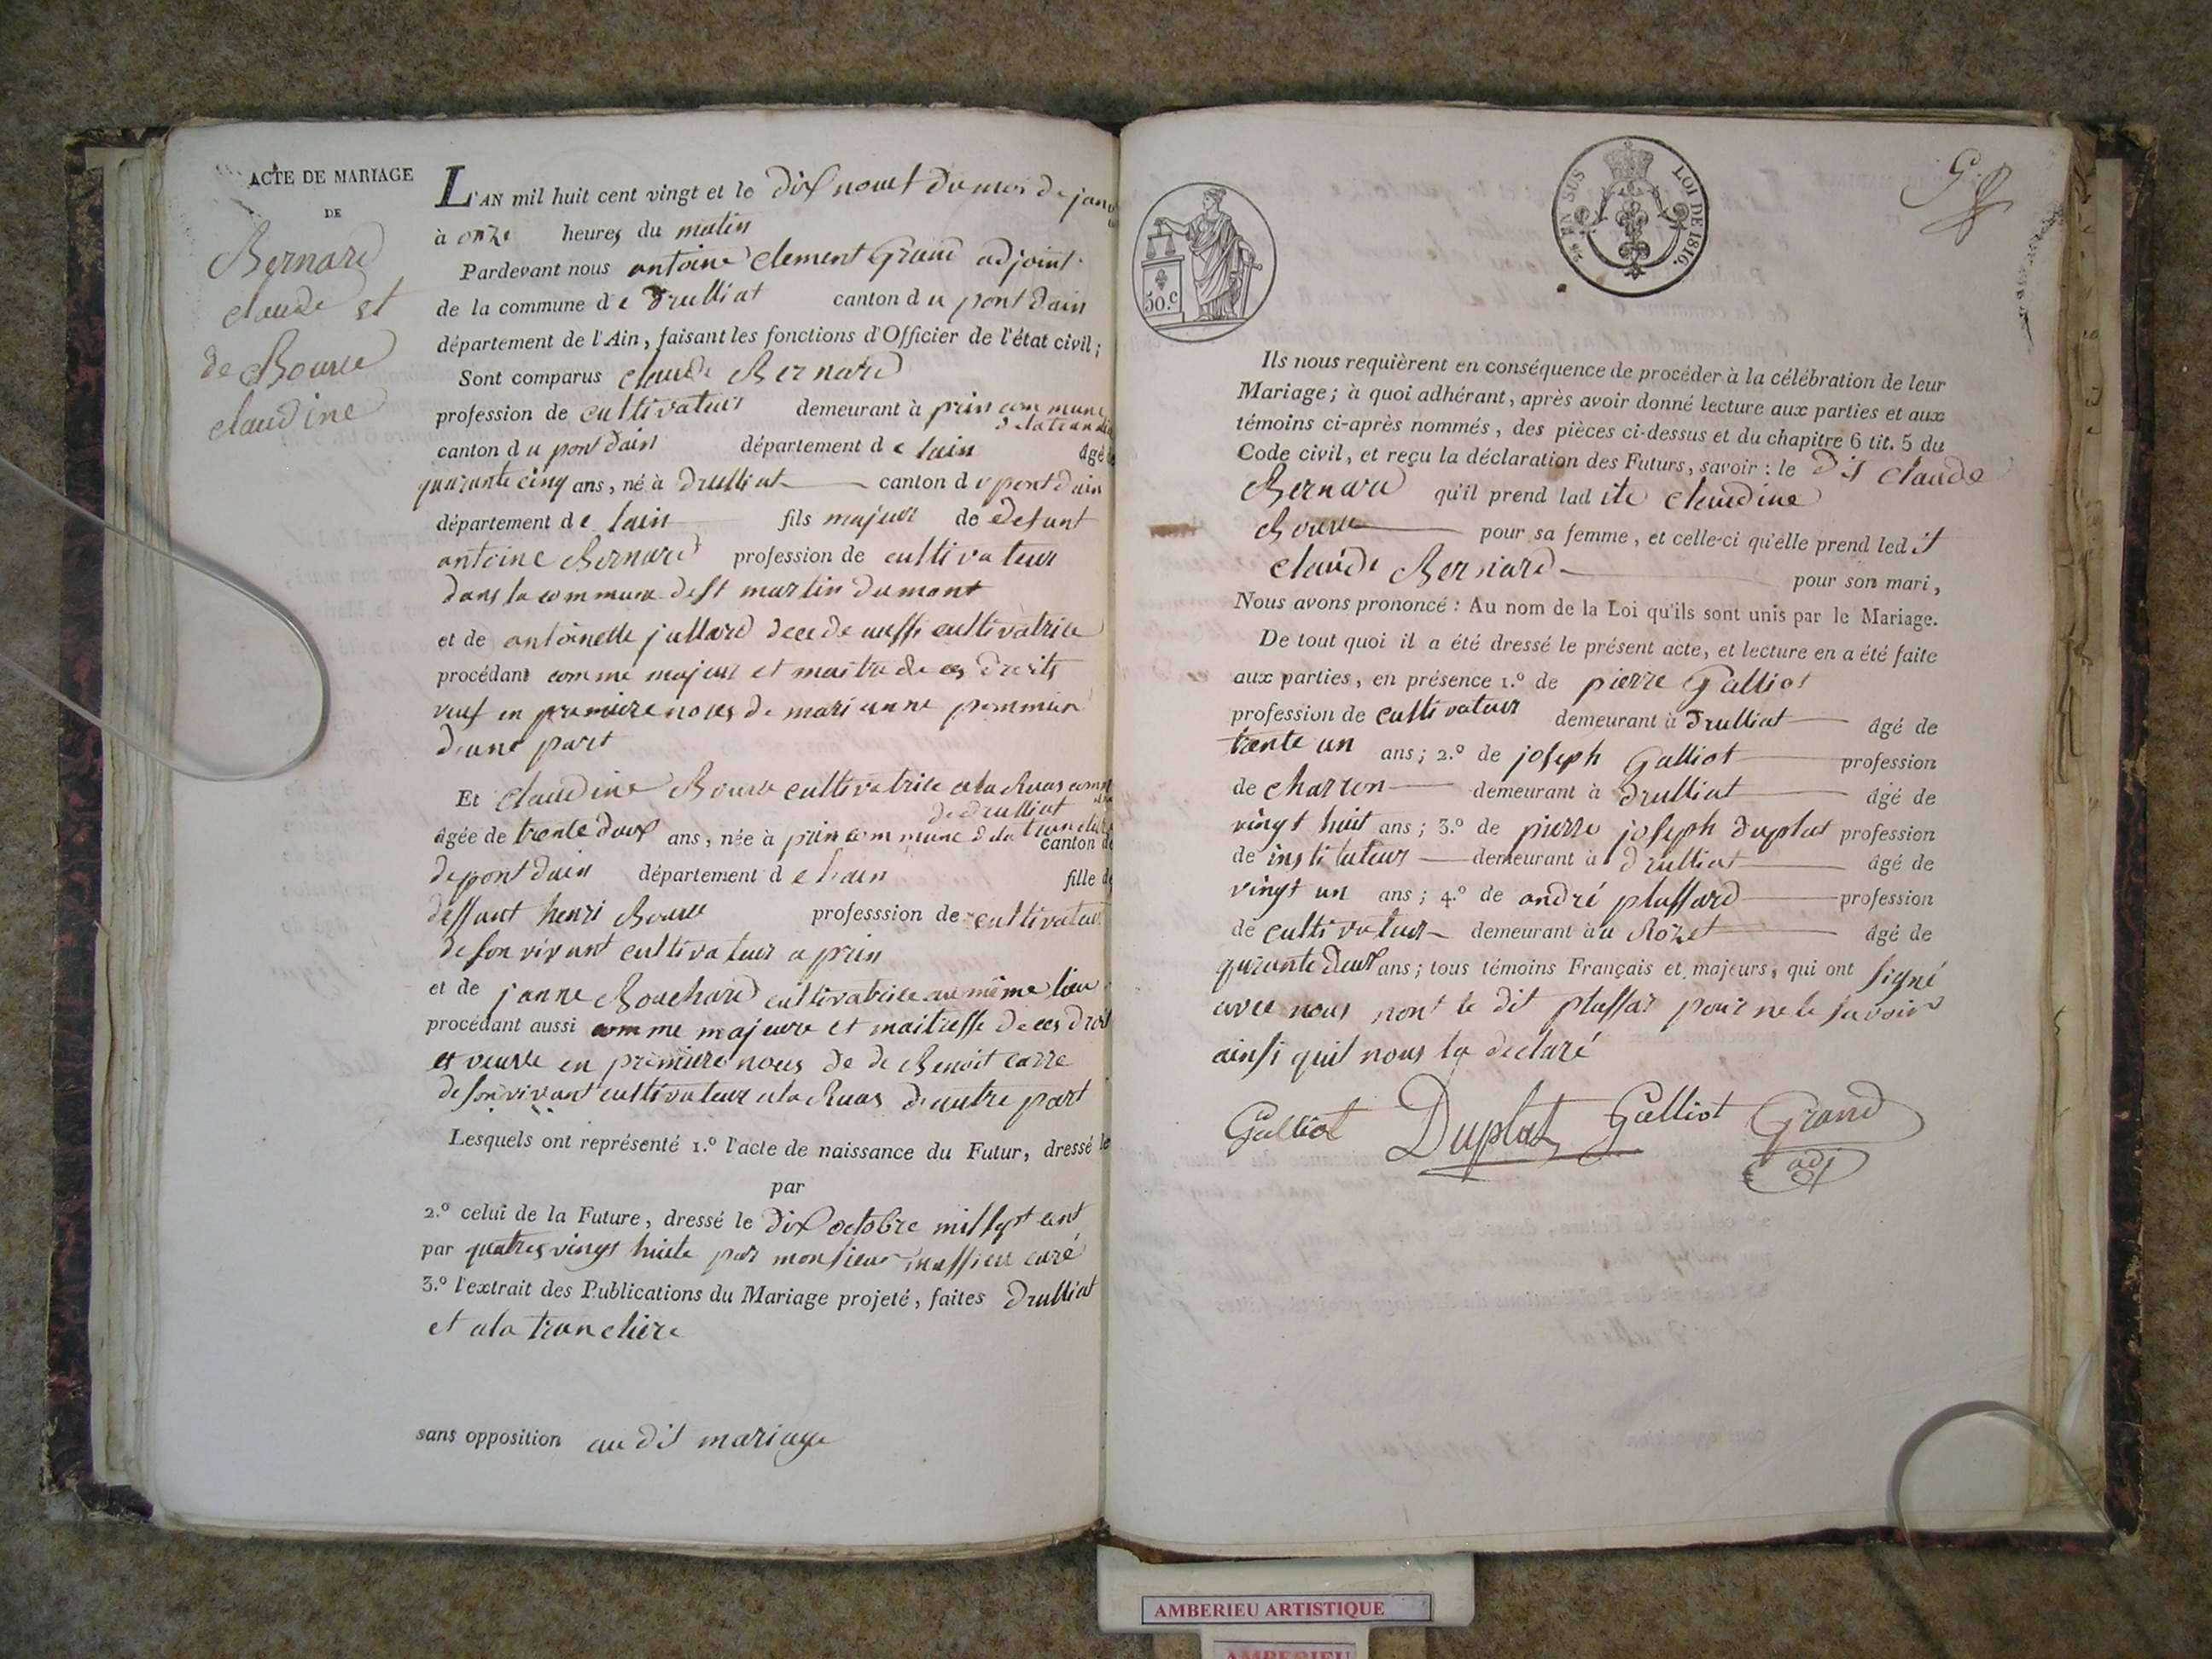 ACTE DE MARIAGE
DE
Bernard
claude et
de Bourre
claudine
L'AN mil huit cent vingt et le dix neuf du mois de janv
à onze heures du matin
Pardevant nous antoine clement Grand adjoint
de la commune de Drulliat canton du pont dain
département de l'Ain, faisant les fonctions d'Officier de l'état civil;
Sont comparus claude Bernard
profession de cultivateur demeurant à prin commune
canton du pont dain département de lain âgé
quarante cinq ans, né à Drulliat canton du pont dain
département de lain fils majeur de defunt
antoine Bernard profession de cultivateur
dans la commune de st martin du mont
et de antoinette jullard decede aussi cultivatrice
procédant comme majeur et maitre de ces droits
veuf en premiere noces de marianne
d'une part
Et claudine Bourre cultivatrice a la Ruas comm
de drulliat
âgée de trente deux ans, née à prin commune de la trancliere canton de
de pont dain département de lain fille de
deffunt henri Bourre professsion de cultivateur
de son vivant cultivateur a prin
et de janne Bouchard cultivatrice au même lieu
procédant aussi comme majeure et maitresse de ces droit
et veuve en premiere nous de de Benoit carre
de son vivant cultivateur a la Ruas d'autre part
Lesquels ont représenté 1.º l'acte de naissance du Futur, dressé le
par
2.º celui de la Future, dressé le dix octobre mil sept cent
par quatres vingt huite par monsieur curé
3.º l'extrait des Publications du Mariage projeté, faites drulliat
et a la trancliere
sans opposition au dit mariage
50.c
EN SUS
LOI DE 1816.
Ils nous requièrent en conséquence de procéder à la célébration de leur
Mariage; à quoi adhérant, après avoir donné lecture aux parties et aux
témoins ci-après nommés, des pièces ci-dessus et du chapitre 6 tit. 5 du
Code civil, et reçu la déclaration des Futurs, savoir: le dit claude
Bernard qu'il prend lad ite claudine
Bourre pour sa femme, et celle-ci qu'elle prend led it
claude Bernard pour son mari,
Nous avons prononcé: Au nom de la Loi qu'ils sont unis par le Mariage.
De tout quoi il a été dressé le présent acte, et lecture en a été faite
aux parties, en présence 1.º de pierre Galliot
profession de cultivateur demeurant à Drulliat âgé de
trente un ans; 2.º de joseph Galliot profession
de charron demeurant à Drulliat âgé de
vingt huit ans; 3.º de pierre joseph duplat profession
de instituteur demeurant à drulliat âgé de
vingt un ans; 4.º de andré plassard profession
de cultivateur demeurant àu Rozet âgé de
quarante deux ans; tous témoins Français et majeurs, qui ont signé
avec nous non le dit plassar pour ne le savoir
ainsi quil nous la declaré
Galliot Duplat Galliot Grand
adj
AMBERIEU ARTISTIQUE
AMBERIEU